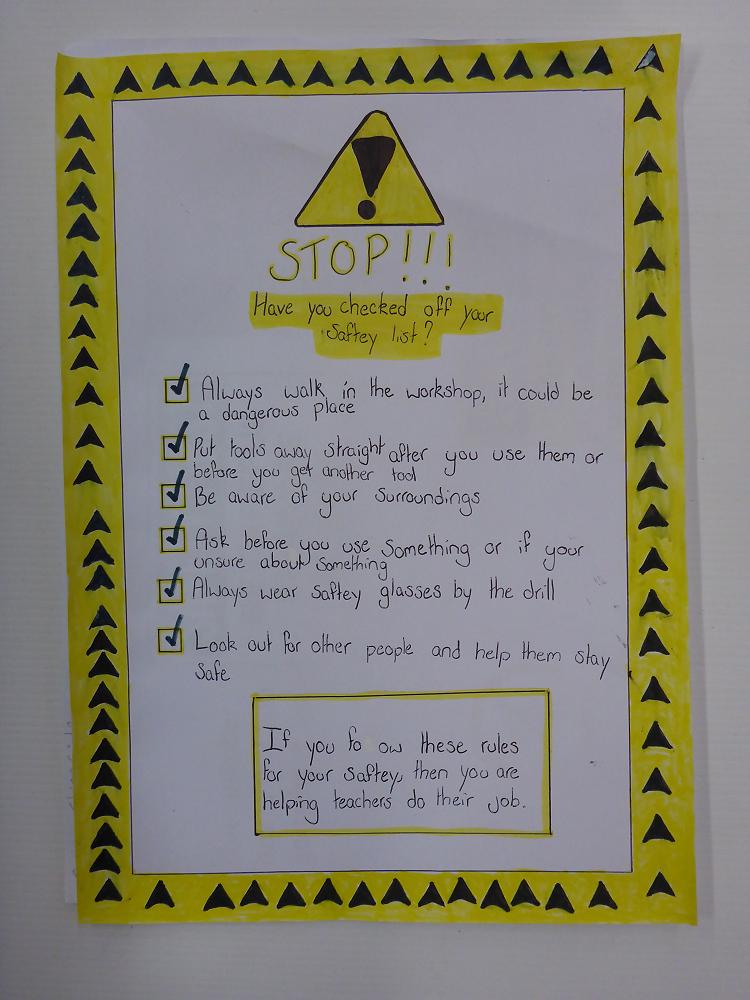 STOP!!!
Have you checked off your
Saftey list?
Always walk in the workshop, it could be
a dangerous place
Put tools away straight after you use them or
before you get another tool
Be aware of your surroundings
Ask before you use something or if your
unsure about something
Always wear saftey glasses by the drill
Look out for other people and help them stay
safe
If you fo ow these rules
for your saftey, then you are
helping teachers do their job.